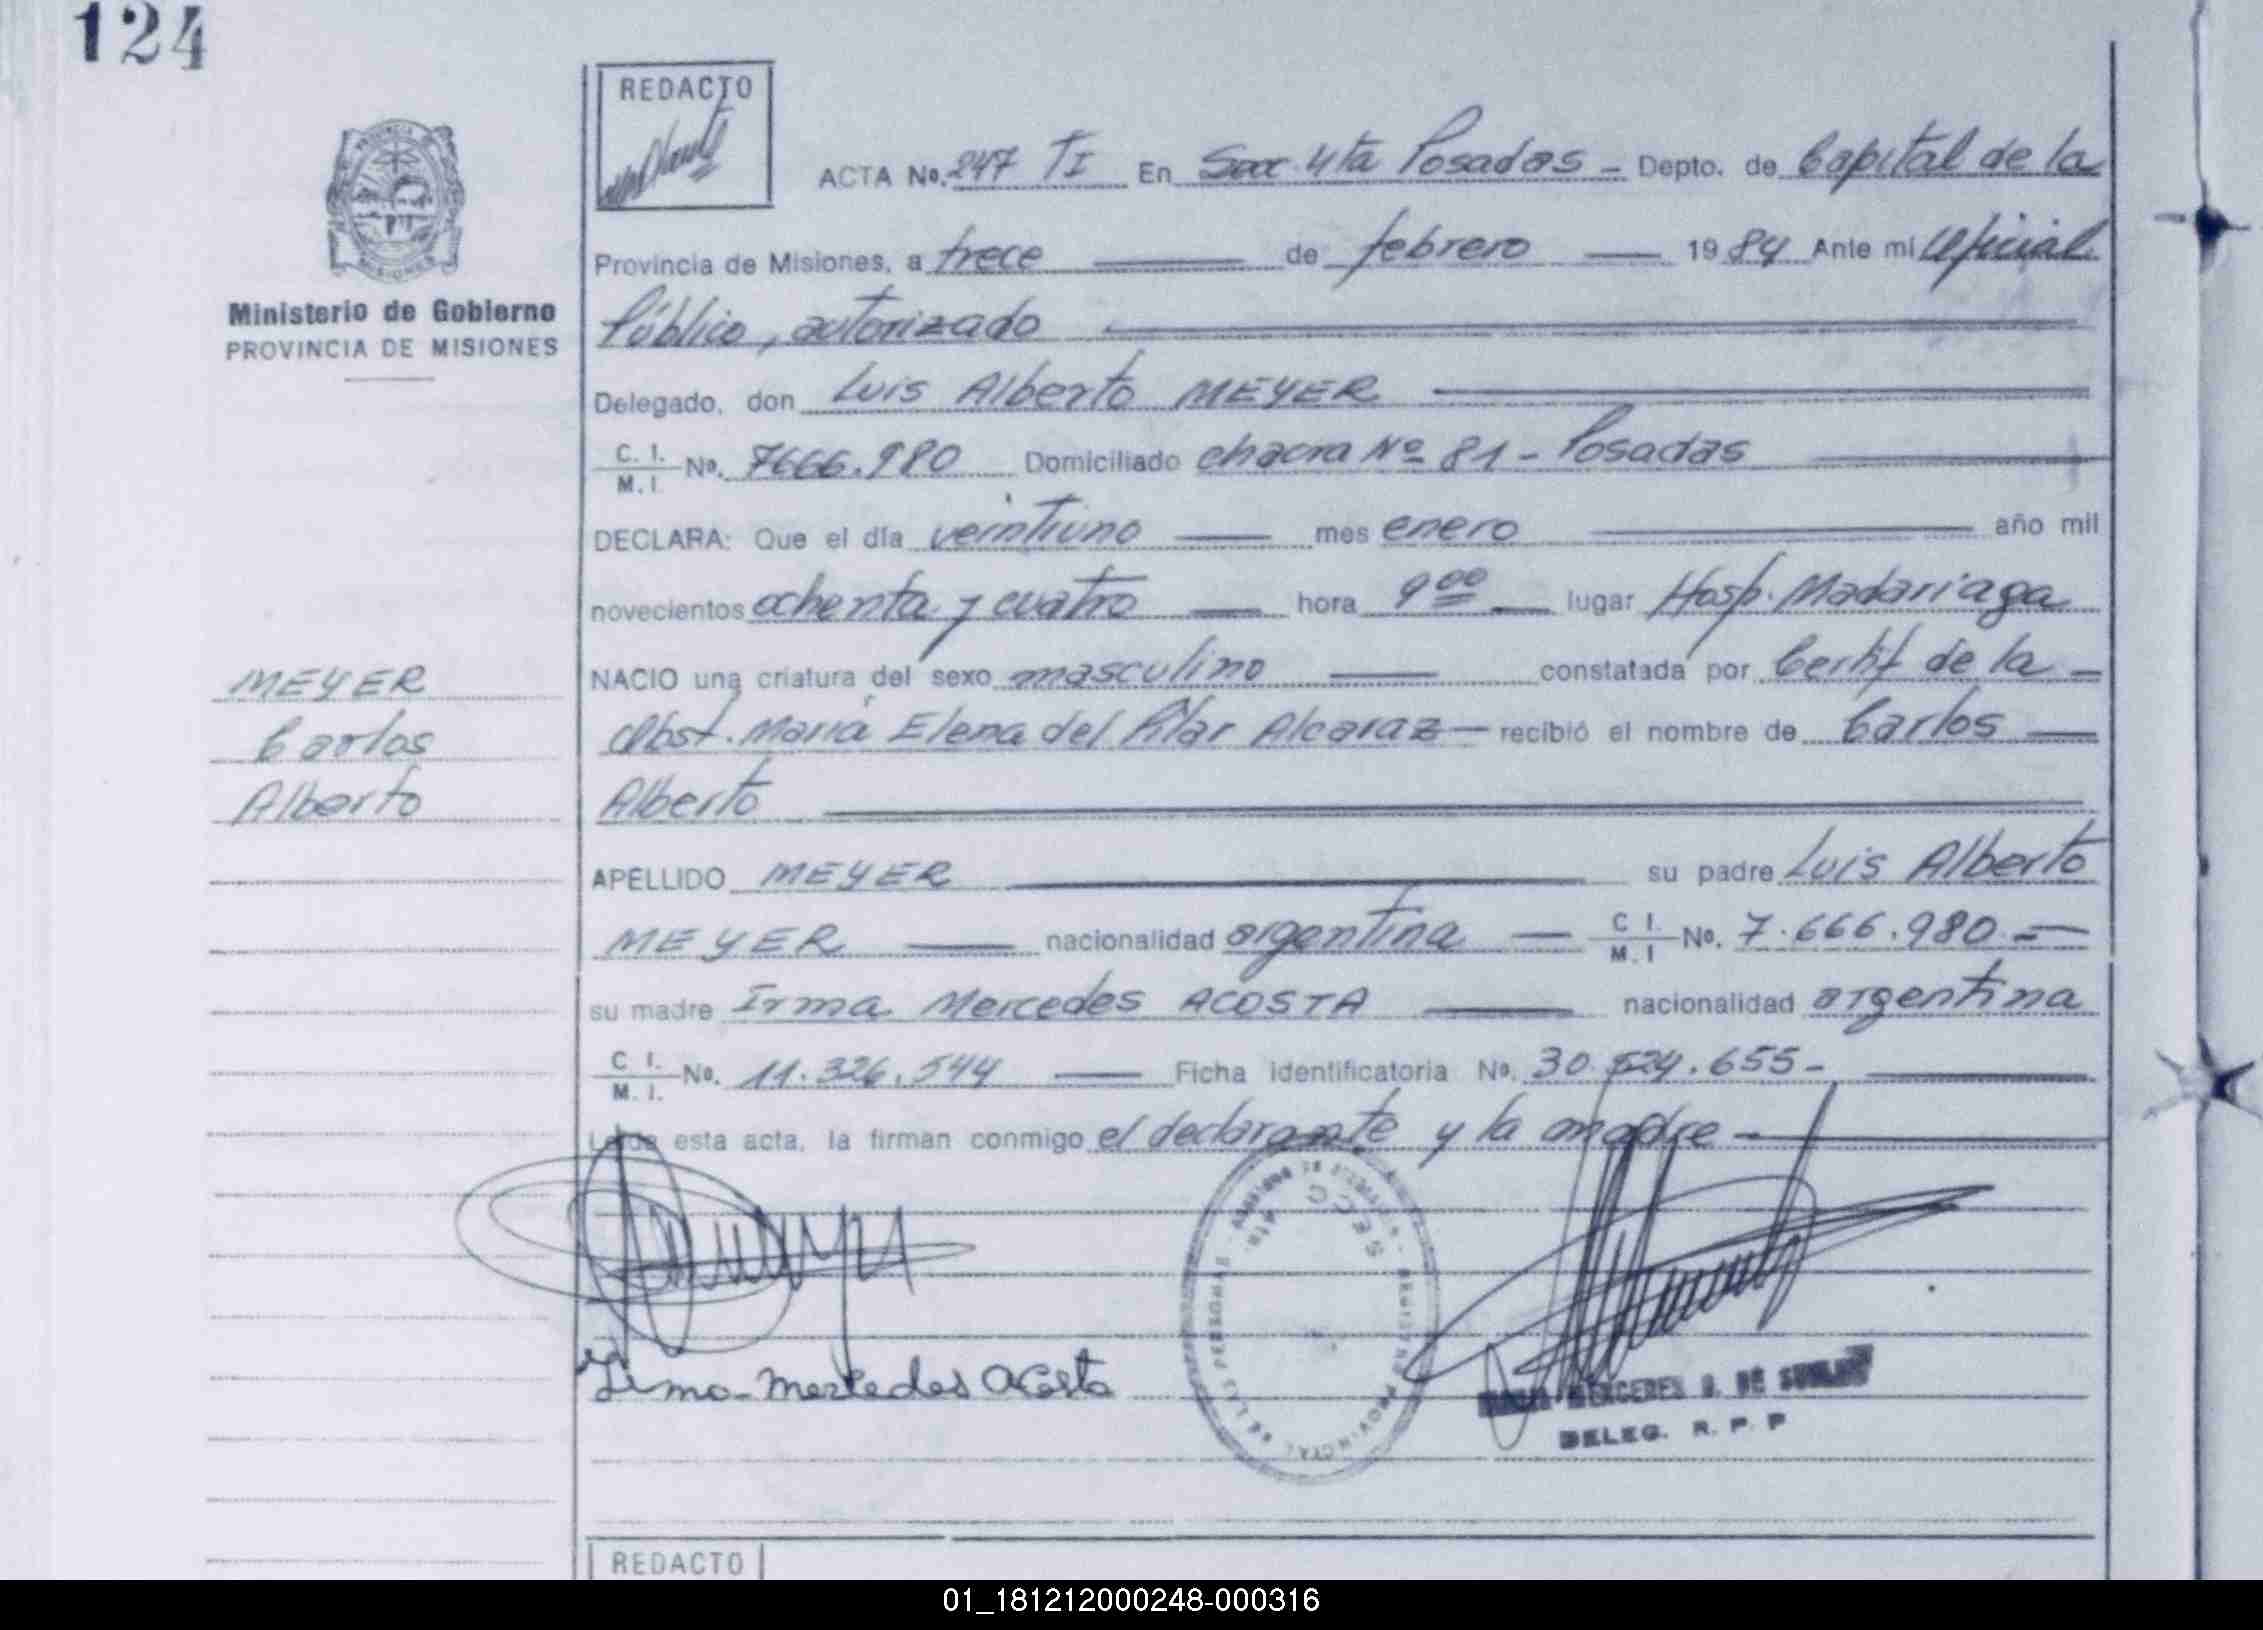 124
REDACTO
ACTA No. 247 TI En Secc. 4ta Posadas - Depto. de Capital de la
Provincia de Misiones, a trece de febrero 1984 Ante mi Oficial
Ministerio de Gobierno
PROVINCIA DE MISIONES
Público, autorizado
Delegado, don Luis Alberto MEYER
C. I. M. I. No. 7666.980 Domiciliado chacra Nº 81 - Posadas
DECLARA: Que el día veintiuno mes enero año mil
novecientos ochenta y cuatro hora 9 00 lugar Hosp. Madariaga
MEYER
Carlos
Alberto
NACIO una criatura del sexo masculino constatada por Certif de la
Obst. María Elena del Pilar Alcaraz recibió el nombre de Carlos
Alberto
APELLIDO MEYER su padre Luis Alberto
MEYER nacionalidad argentina C I. M. I No. 7.666.980.
su madre Irma Mercedes ACOSTA nacionalidad argentina
C I. M. I. No. 11.326.544 Ficha identificatoria No. 30.524.655-
Leída esta acta, la firman conmigo el declarante y la madre -
SECC 4ta.
REGISTRO PROVINCIAL DE LAS PERSONAS
Irma Mercedes Acosta
MERCEDES DE
DELEG. R. P. P
REDACTO
01_181212000248-000316